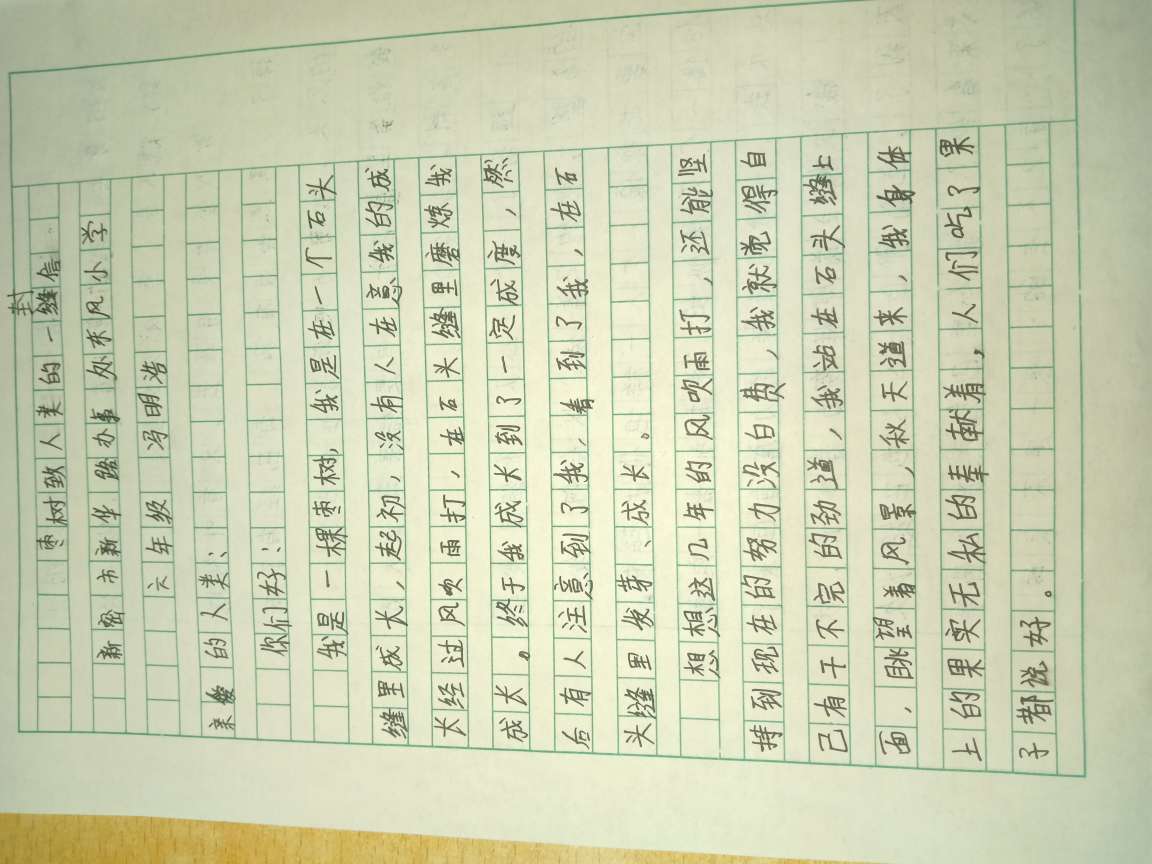 枣树致人类的一封信
新密市新华路办事处米风小学
六年级 冯明浩
亲爱的人类：
你们好：
我是一棵枣树，我是在一个石头
缝里成长，起初，没有人在意我的成
长经过风吹雨打，在石头缝里磨炼我
成长。终于我成长到了一定成度，然
后有人注意到了我，看到了我，在石
头缝里发芽、成长。
想想这几年的风吹雨打，还能坚
持到现在的努力没白费，我就觉得自
己有干不完的劲道，我站在石头缝上
面，眺望着风景，秋天道来，我身体
上的果实无私的奉献着，人们吃了果
子都说好。